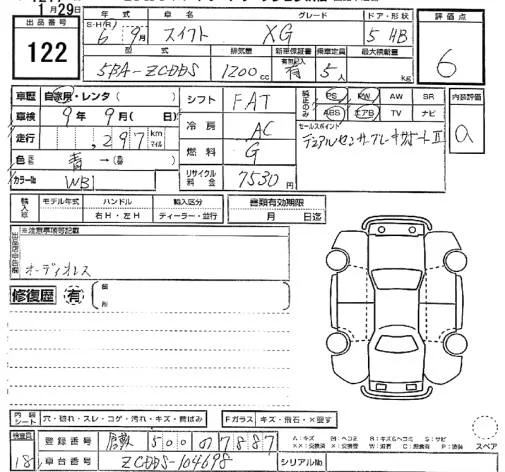 1月29日
出品番号
122
年式 車名 グレード ドア・形状
S・H(R)
6年9月 スイフト XG 5 HB
型式 排気量 新車保証書 乗車定員 最大積載量
5BA-ZCDDS 1200cc 有 5人 kg
評価点
6
車歴 自家用・レンタ ( )
車検 9年9月(日)
走行 ,297 km マイル
色 青→(春)
カラーNo WB1
シフト FAT
冷房 AC
燃料 G
リサイクル料金 7530円
純正のみ PS PW AW SR
ABS エアB TV ナビ
セールスポイント
デュアルセンサーブレーキサポートII
内装評価
a
輸入車 モデル年式 ハンドル 輸入区分 書類有効期限
右H・左H ディーラー・並行 月 日迄
※注意事項号記載
オーディオレス
修復歴 有 箇所
内装シート 穴・破れ・スレ・コゲ・汚れ・キズ・荷ばみ
Fガラス キズ・飛石・×要す
検査員
18
登録番号 500 7887
車台番号 ZCDDS-104698
シリアルNo
A:キズ
スペア